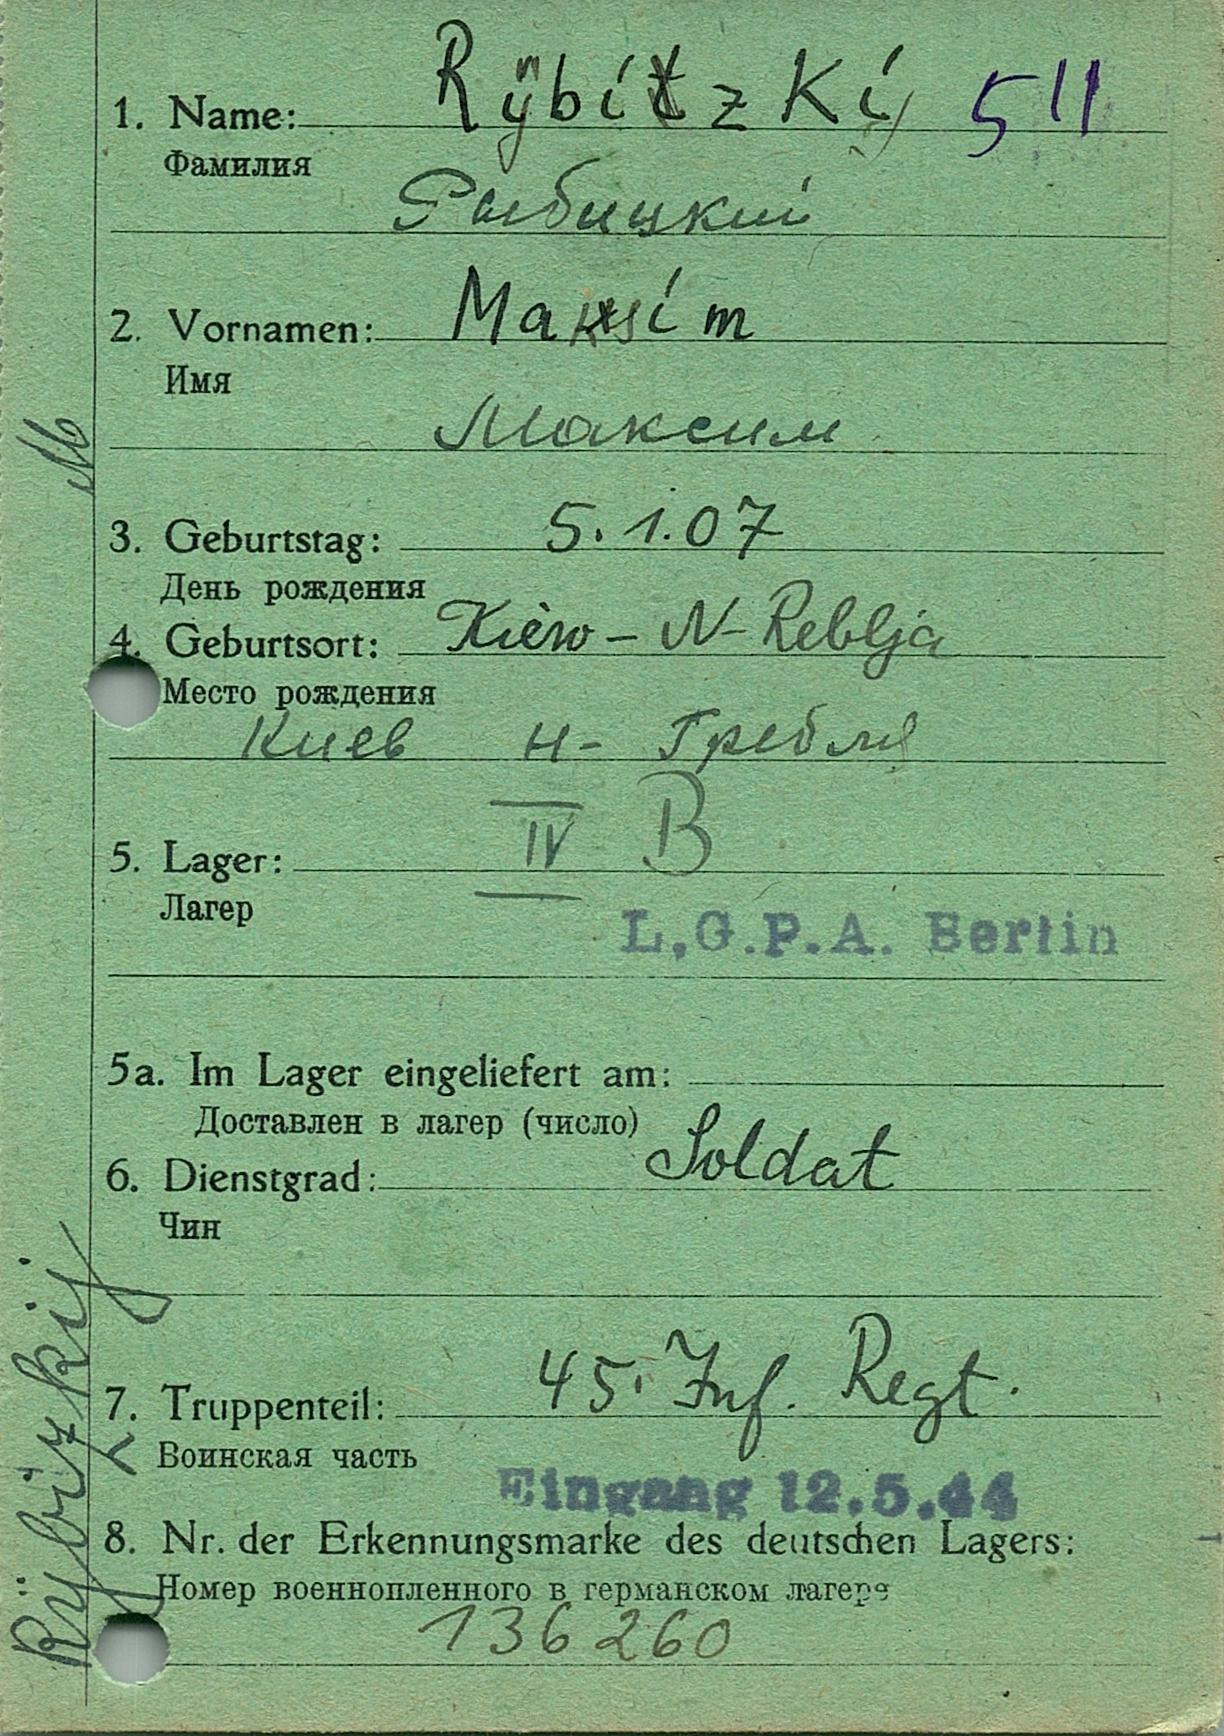 1. Name: Rÿbitzkij 511
Фамилия
Рыбицкий
2. Vornamen: Maksim
Имя
Максим
3. Geburtstag: 5.1.07
День рождения
4. Geburtsort: Kièw - N - Reblja
Место рождения
Киев н- Гребля
5. Lager: IV B
Лагер
L.G.P.A. Berlin
5a. Im Lager eingeliefert am:
Доставлен в лагер (число)
6. Dienstgrad: Soldat
Чин
7. Truppenteil: 45. Inf. Regt.
Воинская часть
Eingang 12.5.44
8. Nr. der Erkennungsmarke des deutschen Lagers:
Номер военнопленного в германском лагере
136260
Rÿbizkij